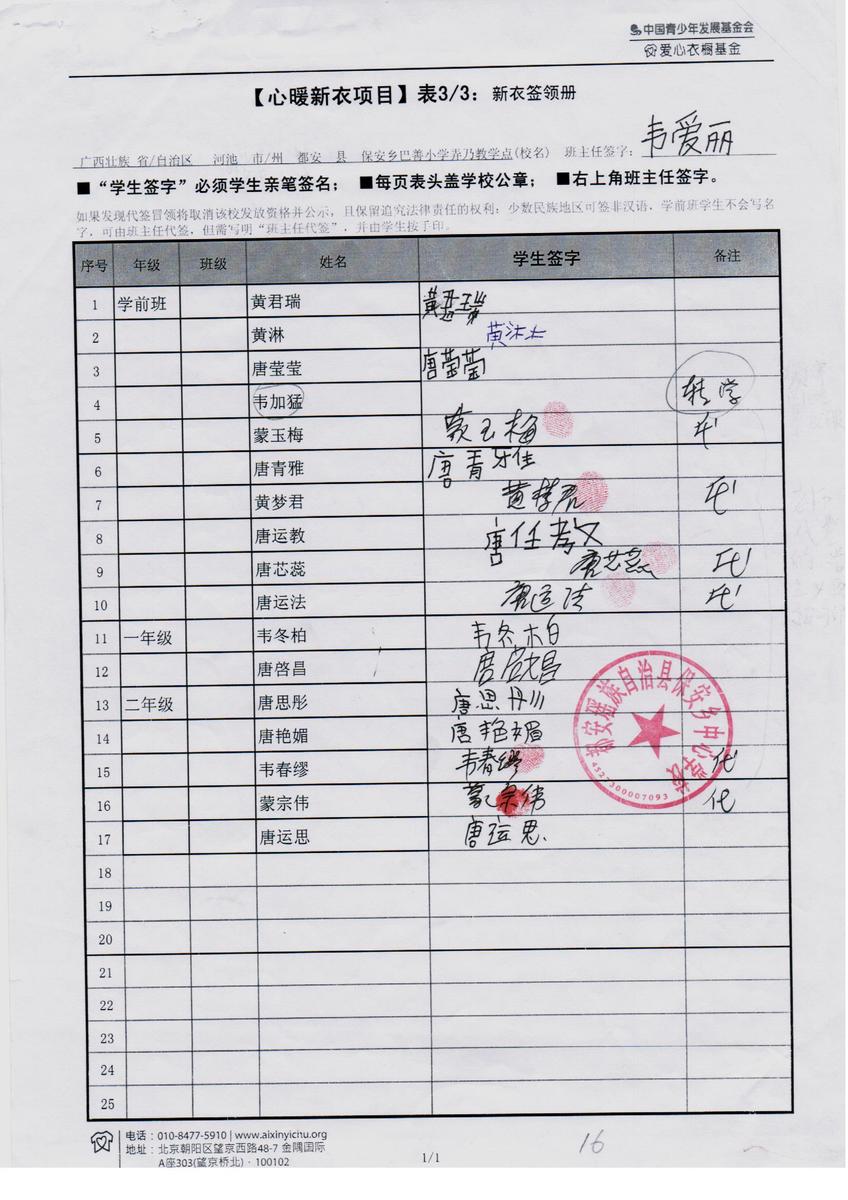 中国青少年发展基金会
爱心衣橱基金
【心暖新衣项目】表3/3：新衣签领册
广西壮族 省/自治区 河池 市/州 都安 县 保安乡巴善小学弄乃教学点(校名) 班主任签字： 韦爱丽
■“学生签字”必须学生亲笔签名； ■每页表头盖学校公章； ■右上角班主任签字。
如果发现代签冒领将取消该校发放资格并公示，且保留追究法律责任的权利；少数民族地区可签非汉语，学前班学生不会写名
字，可由班主任代签，但需写明“班主任代签”，并由学生按手印。
序号 年级 班级 姓名 学生签字 备注
1 学前班 黄君瑞 黄君瑞
2 黄淋 黄沐
3 唐莹莹 唐莹莹
4 韦加猛 转学
5 蒙玉梅 蒙玉梅 代
6 唐青雅 唐青雅
7 黄梦君 黄梦君 代
8 唐运教 唐任教
9 唐芯蕊 唐芯蕊 代
10 唐运法 唐运法 代
11 一年级 韦冬柏 韦冬柏
12 唐啓昌 唐启昌
13 二年级 唐思彤 唐思彤
14 唐艳媚 唐艳媚
15 韦春缪 韦春缪 代
16 蒙宗伟 蒙宗伟 代
17 唐运思 唐运思
都安瑶族自治县保安乡中心学校
4527300007093
18
19
20
21
22
23
24
25
电话：010-8477-5910 | www.aixinyichu.org
地址：北京朝阳区望京西路48-7 金隅国际
A座303(望京桥北)·100102
1/1
16